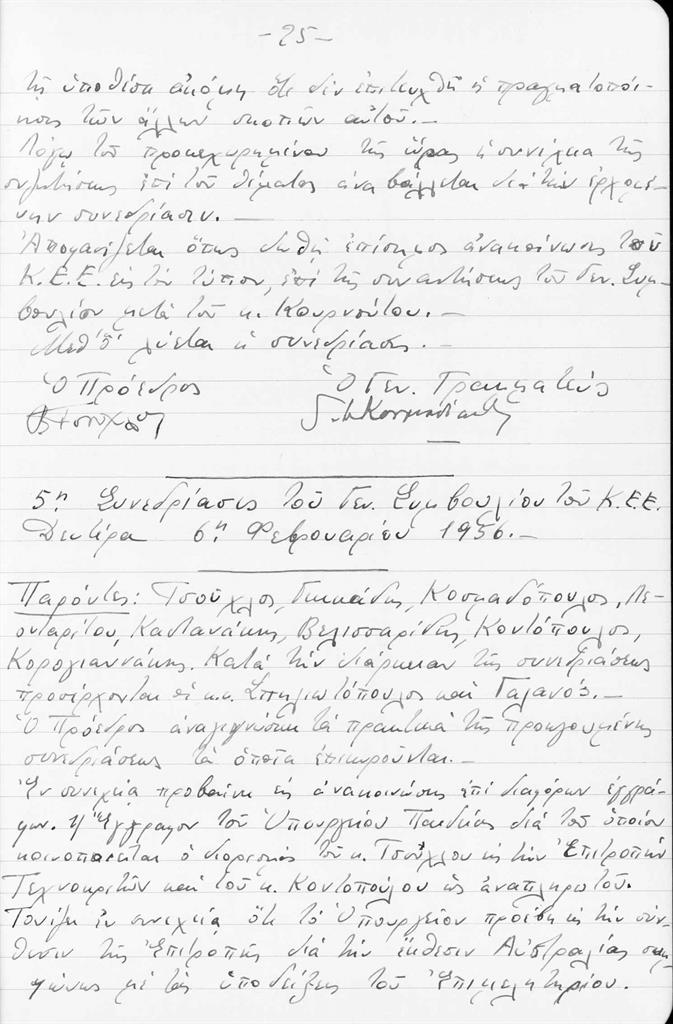 -25-
τῇ ὑποθέσει ἀκόμη ὅτι δὲν ἐπετεύχθη ἡ πραγματοποί-
ησις τῶν ἄλλων σκοπῶν αὐτοῦ.-
Λόγῳ τοῦ προκεχωρημένου τῆς ὥρας ἡ συνέχεια τῆς
συζητήσεως ἐπὶ τοῦ θέματος ἀναβάλλεται διὰ τὴν ἐρχομέ-
νην συνεδρίασιν.-
Ἀποφασίζεται ὅπως δωθῇ ἐπίσημος ἀνακοίνωσις τοῦ
Κ.Ε.Ε. εἰς τὸν τύπον, ἐπὶ τῆς συναντήσεως τοῦ Γεν. Συμ-
βουλίου μετὰ τοῦ κ. Κουρνούτου.-
Μεθ' ὃ λύεται ἡ συνεδρίασις.-
Ὁ Πρόεδρος Ὁ Γεν. Γραμματεὺς
5η Συνεδρίασις τοῦ Γεν. Συμβουλίου τοῦ Κ.Ε.Ε.
Δευτέρα 6η Φεβρουαρίου 1956.-
Παρόντες: Τσοῦχλος, Κοσμαδόπουλος, Λε-
ονταρίτου, Καστανάκης, Βελισσαρίδης, Κοντόπουλος,
Κορογιαννάκης. Κατὰ τὴν διάρκειαν τῆς συνεδριάσεως
προσέρχονται οἱ κ.κ. Σπηλιωτόπουλος καὶ Γαλανός.-
Ὁ Πρόεδρος ἀναγιγνώσκει τὰ πρακτικὰ τῆς προηγουμένης
συνεδριάσεως τὰ ὁποῖα ἐπικυροῦνται.-
Ἐν συνεχείᾳ προβαίνει εἰς ἀνακοινώσεις ἐπὶ διαφόρων ἐγγρά-
φων. 1) Ἔγγραφον τοῦ Ὑπουργείου Παιδείας διὰ τοῦ ὁποίου
κοινοποιεῖται ὁ διορισμὸς τοῦ κ. Τσούχλου εἰς τὴν Ἐπιτροπὴν
Τεχνοκριτῶν καὶ τοῦ κ. Κοντοπούλου ὡς ἀναπληρωτοῦ.
Τονίζει ἐν συνεχείᾳ ὅτι τὸ Ὑπουργεῖον προέβη εἰς τὴν σύν-
θεσιν τῆς Ἐπιτροπῆς διὰ τὴν ἔκθεσιν Αὐστραλίας συμ-
φώνως μὲ τὰς ὑποδείξεις τοῦ Ἐπιμελητηρίου.